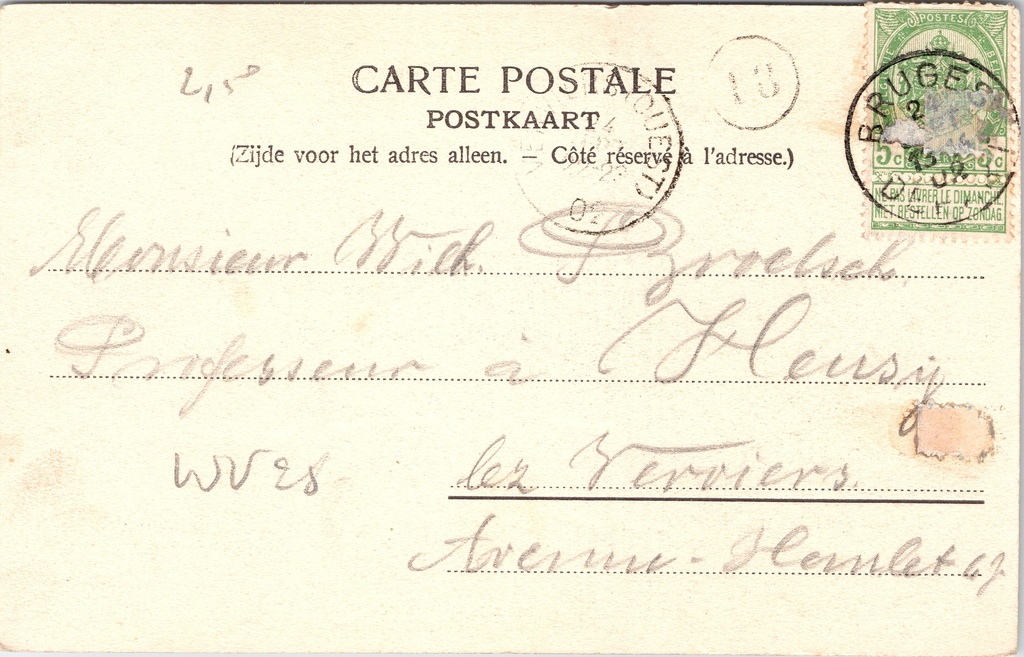 2,50
CARTE POSTALE
POSTKAART
(Zijde voor het adres alleen. — Côté réservé à l'adresse.)
18
POSTES
BRUGES
5c 5c
NE PAS LIVRER LE DIMANCHE
NIET BESTELLEN OP ZONDAG
OUEST)
02
Monsieur Wilh. Broelsch
Professeur à Heusy
lez Verviers.
WV 28
Avenue Hamlet 67